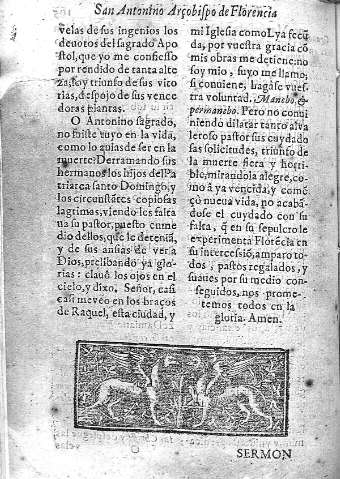 San Antonino Arçobispo de Florencia
velas de sus ingenios los
deuotos del sagrado Apo
stol, que yo me confiesso
por rendido de tanta alte
za, soy triunfo de sus vito
rias, despojo de sus vence
doras plantas.
O Antonino sagrado,
no fuiste tuyo en la vida,
como lo auias de ser en la
muerte: Derramando sus
hermanos los hijos del Pa
triarca santo Domingo, y
los circunstãtes copiosas
lagrimas, viendo les falta
ua su pastor, puesto en me
dio dellos, que le detenia,
y de sus ansias de ver a
Dios, prelibando ya glo-
rias: clauò los ojos en el
cielo, y dixo. Señor, casi
casi me veo en los braços
de Raquel, esta ciudad, y
mi Iglesia como Lya fecũ
da, por vuestra gracia cõ
mis obras me detiene: no
soy mio, suyo me llamo;
si conuiene, hagase vues-
tra voluntad. Manebo, &
permanebo. Pero no conui
niendo dilatar tanto al va
leroso pastor sus cuydado
sas solicitudes, triunfo de
la muerte fiera y horri-
ble, mirandola alegre, co-
mo à ya vencida, y comẽ
çò nueua vida, no acabã-
dose el cuydado con su
falta, q̃ en su sepulcro le
experimenta Florẽcia en
su intercession, amparo to
dos, pastos regalados, y
suaues por su medio con-
seguidos, nos prome-
temos todos en la
gloria. Amen.
SERMON